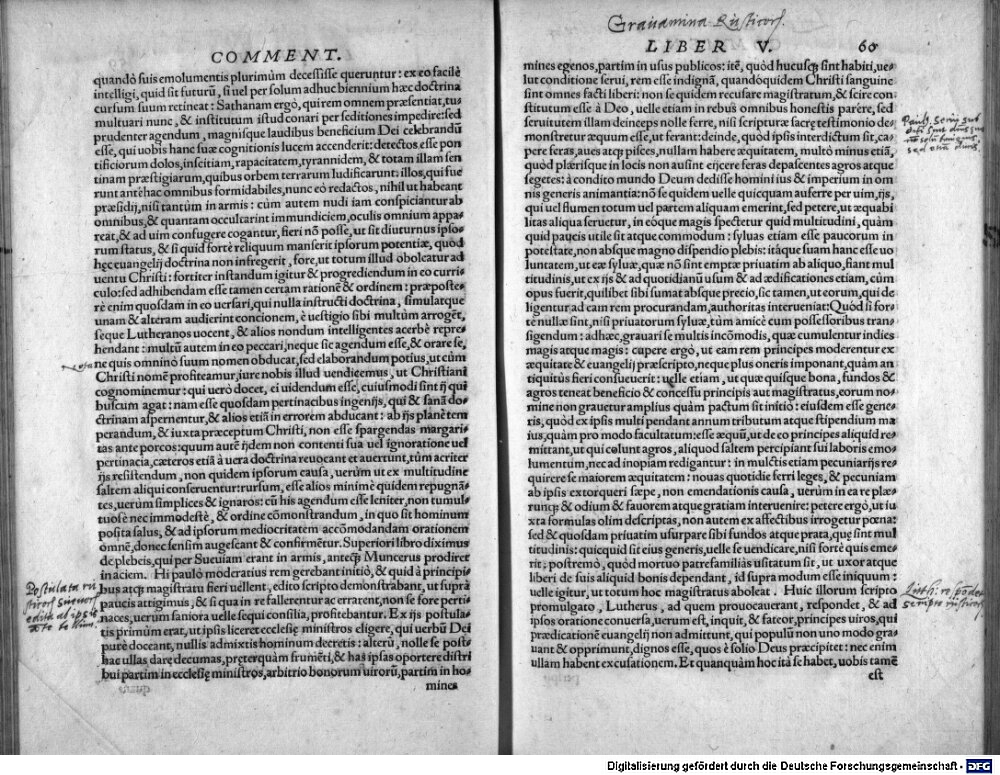 COMMENT.
quandò suis emolumentis plurimùm decessisse queruntur: ex eo facilè
intelligi, quid sit futurũ, si uel per solum adhuc biennium hæc doctrina
cursum suum retineat: Sathanam ergò, qui rem omnem præsentiat, tu-
multuari nunc, & institutum istud conari per seditiones impedire: sed
prudenter agendum, magnisque laudibus beneficium Dei celebrandũ
esse, qui uobis hanc suæ cognitionis lucem accenderit: detectos esse pon
tificiorum dolos, inscitiam, rapacitatem, tyrannidem, & totam illam sen
tinam præstigiarum, quibus orbem terrarum ludificarunt: illos, qui fue
runt antè hac omnibus formidabiles, nunc eò redactos, nihil ut habeant
præsidij, nisi tantùm in armis: cùm autem nudi iam conspiciantur ab
omnibus, & quantam occultarint immundiciem, oculis omnium appa-
reat, & ad uim confugere cogantur, fieri nõ posse, ut sit diuturnus ipso-
rum status, & si quid fortè reliquum manserit ipsorum potentiæ, quòd
hęc euangelij doctrina non infregerit, fore, ut totum illud oboleatur ad
uentu Christi: fortiter instandum igitur & progrediendum in eo curri-
culo: sed adhibendam esse tamen certam rationẽ & ordinem: præposte-
rè enim quosdam in eo uersari, qui nulla instructi doctrina, simulatque
unam & alteram audierint concionem, è uestigio sibi multùm arrogẽt,
seque Lutheranos uocent, & alios nondum intelligentes acerbè repre-
hendant: multũ autem in eo peccari, neque sic agendum esse, & orare se,
ne quis omninò suum nomen obducat, sed elaborandum potius, ut cùm
Christi nomẽ profiteamur, iure nobis illud uendicemus, ut Christiani
cognominemur: qui uerò docet, ei uidendum esse, cuiusmodi sint ij qui
buscum agat: nam esse quosdam pertinacibus ingenijs, qui & sanã do-
ctrinam aspernentur, & alios etiã in errorem abducant: ab ijs planè tem
perandum, & iuxta præceptum Christi, non esse spargendas margari-
tas ante porcos: quum autẽ ijdem non contenti sua uel ignoratione uel
pertinacia, cæteros etiã à uera doctrina reuocant et auertunt, tùm acriter
ijs resistendum, non quidem ipsorum causa, uerùm ut ex multitudine
saltem aliqui conseruentur: rursum, esse alios minimè quidem repugnã-
tes, uerùm simplices & ignaros: cũ his agendum esse leniter, non tumul-
tuosè nec immodestè, & ordine cõmonstrandum, in quo sit hominum
posita salus, & ad ipsorum mediocritatem accõmodandam orationem
omnẽ, donec sensim augescant & confirmẽtur. Superiori libro diximus
de plebeis, qui per Sueuiam erant in armis, anteꝗ̃ Muncerus prodiret
in aciem. Hi paulò moderatius rem gerebant initiò, & quid à principi-
bus atꝗ magistratu fieri uellent, edito scripto demonstrabant, ut suprà
paucis attigimus, & si qua in re fallerentur ac errarent, non se fore perti-
naces, uerum saniora uelle sequi consilia, profitebantur. Ex ijs postula-
tis primùm erat, ut ipsis liceret ecclesię ministros eligere, qui uerbũ Dei
purè doceant, nullis admixtis hominum decretis: alterũ, nolle se post
hac ullas darę decumas, pręterquàm frumẽti, & has ipsas oportere distri
bui partim in ecclesię ministros, arbitrio bonorum uirorũ, partim in ho-
mines
Postulata ru
sticorũ
Grauamina Rusticorũ.
LIBER V. 60
mines egenos, partim in usus publicos: itẽ, quòd hucusꝗ sint habiti, ue-
lut conditione serui, rem esse indignã, quandoquidem Christi sanguine
sint omnes facti liberi: non se quidem recusare magistratum, & scire con
stitutum esse à Deo, uelle etiam in rebus omnibus honestis parêre, sed
seruitutem illam deinceps nolle ferre, nisi scripturæ sacrę testimonio de-
monstretur æquum esse, ut ferant: deinde, quòd ipsis interdictum sit, ca-
pere feras, aues atꝗ pisces, nullam habere æquitatem, multò minus etiã,
quòd plærisque in locis non ausint eijcere feras depascentes agros atque
segetes: à condito mundo Deum dedisse homini ius & imperium in om
nis generis animantia: nõ se quidem uelle quicquam auferre per uim, ijs,
qui uel flumen totum uel partem aliquam emerint, sed petere, ut æquabi
litas aliqua seruetur, in eóque magis spectetur quid multitudini, quàm
quid paucis utile sit atque commodum: syluas etiam esse paucorum in
potestate, non absque magno dispendio plebis: itáque suam hanc esse uo
luntatem, ut eæ syluæ, quæ nõ sint emptæ priuatim ab aliquo, fiant mul
titudinis, ut ex ijs & ad quotidianũ usum & ad ædificationes etiam, cùm
opus fuerit, quilibet sibi sumat absque precio, sic tamen, ut eorum, qui de
ligentur ad eam rem procurandam, authoritas interueniat: Quòd si for-
tè nullæ sint, nisi priuatorum syluæ, tùm amicè cum possessoribus tran-
sigendum: adhæc, grauari se multis incõmodis, quæ cumulentur indies
magis atque magis: cupere ergò, ut eam rem principes moderentur ex
æquitate & euangelij præscripto, neque plus oneris imponant, quàm an
tiquitùs fieri consueuerit: uelle etiam, ut quæ quisque bona, fundos &
agros teneat beneficio & concessu principis aut magistratus, eorum no-
mine non grauetur amplius quàm pactum sit initiò: eiusdem esse gene-
ris, quòd ex ipsis multi pendant annum tributum atque stipendium ma
ius, quàm pro modo facultatum: esse æquũ, ut de eo principes aliquid re-
mittant, ut qui colunt agros, aliquod saltem percipiant sui laboris emo-
lumentum, nec ad inopiam redigantur: in mulctis etiam pecuniarijs re-
quirere se maiorem æquitatem: nouas quotidie ferri leges, & pecuniam
ab ipsis extorqueri sæpe, non emendationis causa, uerùm in ea re plæ-
runꝗ & odium & fauorem atque gratiam interuenire: petere ergò, ut iu
xta formulas olim descriptas, non autem ex affectibus irrogetur pœna:
sed & quosdam priuatim usurpare sibi fundos atque prata, quę sint mul
titudinis: quicquid sit eius generis, uelle se uendicare, nisi fortè quis eme-
rit: postremò, quòd mortuo patrefamiliâs usitatum sit, ut uxor atque
liberi de suis aliquid bonis dependant, id supra modum esse iniquum:
uelle igitur, ut totum hoc magistratus aboleat. Huic illorum scripto
promulgato, Lutherus, ad quem prouocauerant, respondet, & ad
ipsos oratione conuersa, uerum est, inquit, & fateor, principes uiros, qui
prædicationẽ euangelij non admittunt, qui populũ non uno modo gra-
uant & opprimunt, dignos esse, quos è solio Deus præcipitet: nec enim
ullam habent excusationem. Et quanquàm hoc ità se habet, uobis tamẽ
est
Digitalisierung gefördert durch die Deutsche Forschungsgemeinschaft - DFG